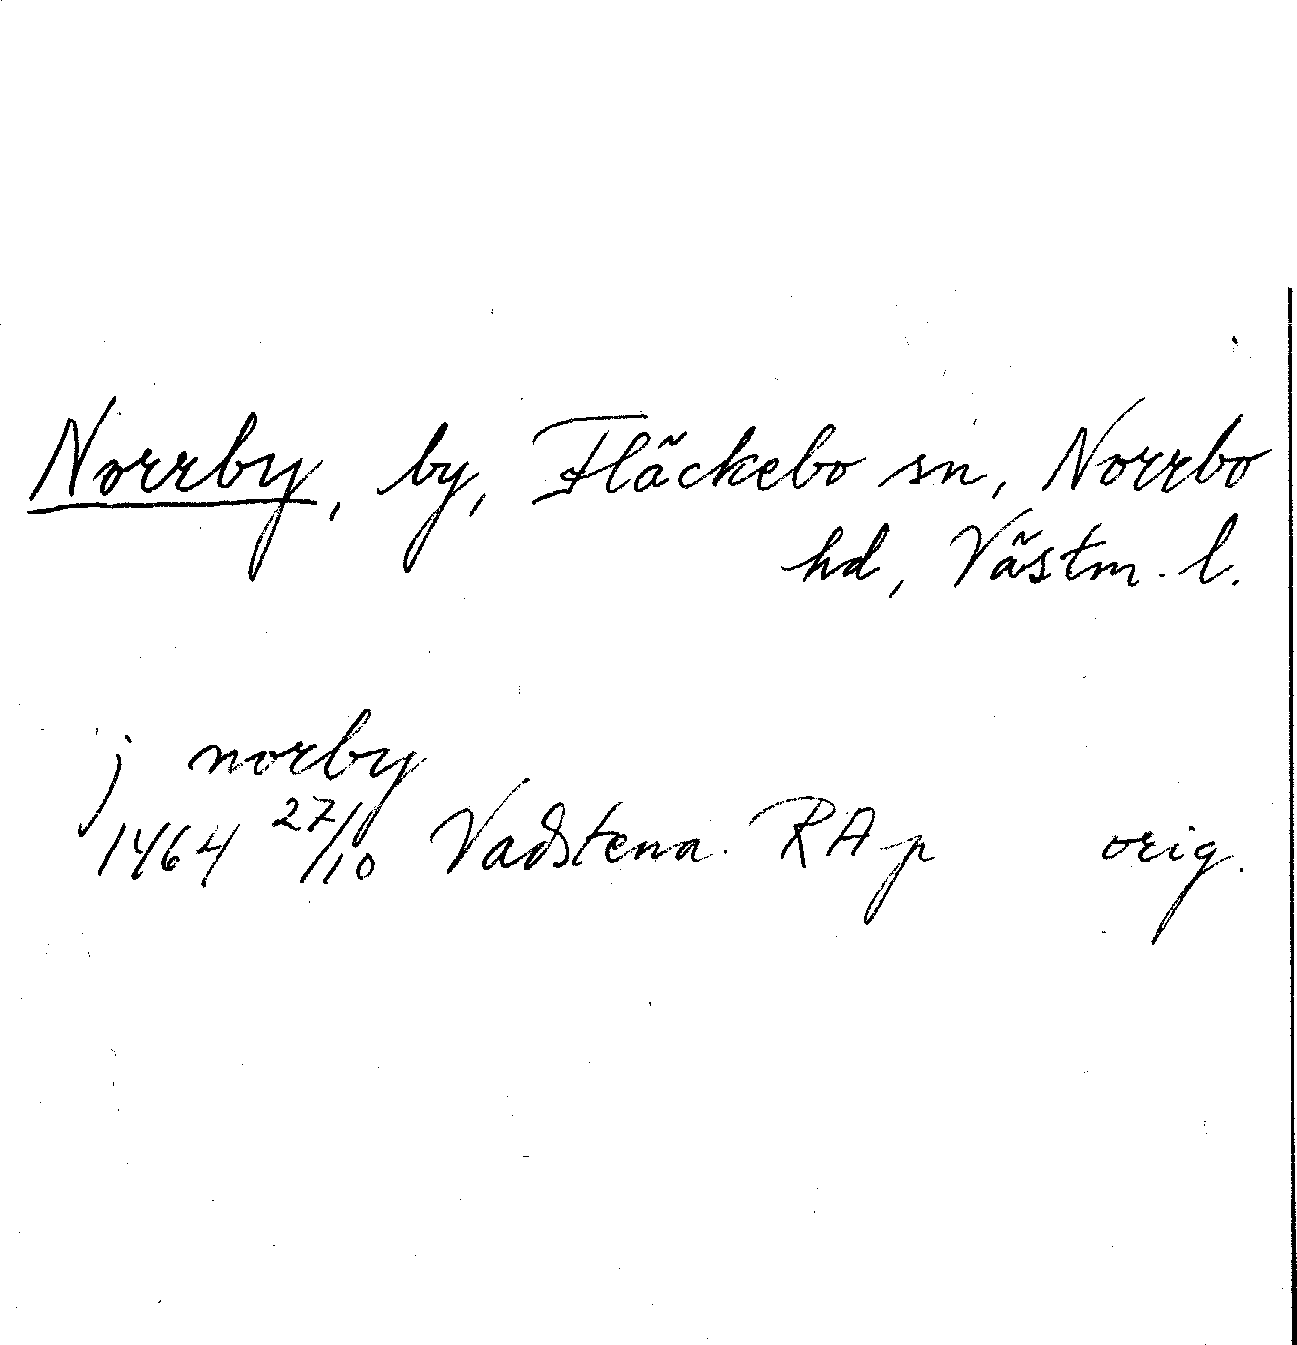 Norrby, by, Fläckebo sn, Norrbo
hd, Västm. l.
j norby
1464 27/10 Vadstena. RAp orig.